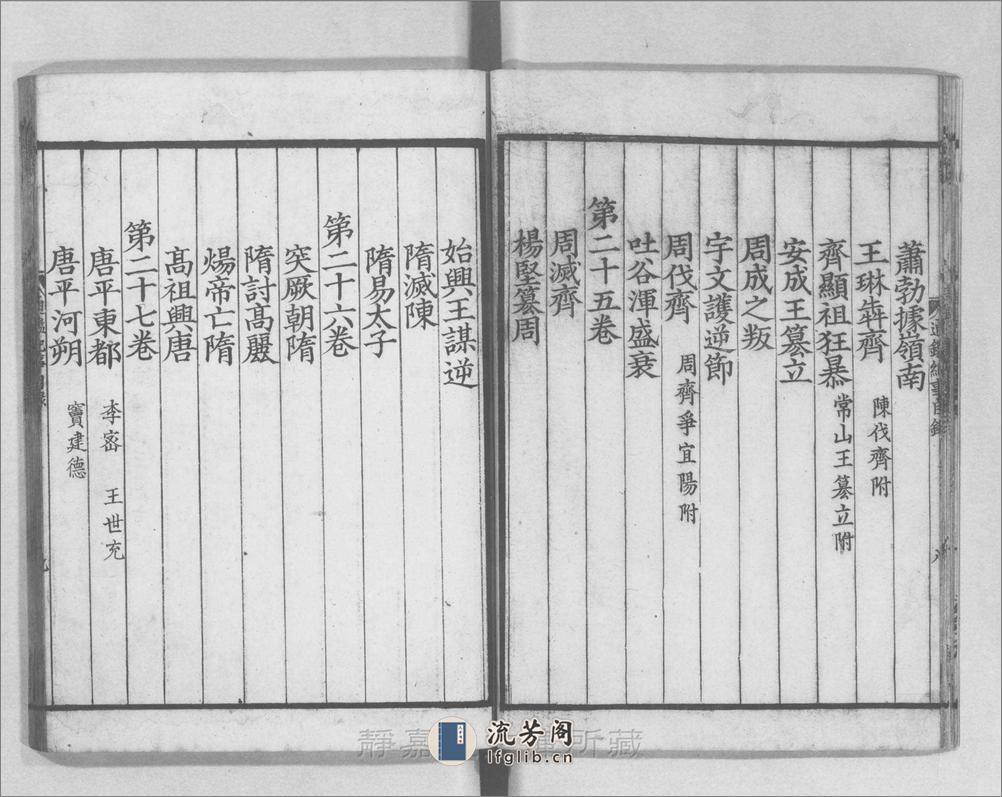 蕭勃據嶺南
王琳犇齊 陳伐齊附
齊顯祖狂暴 常山王篡立附
安成王篡立
周成之叛
宇文護逆節
周伐齊 周齊爭宜陽附
吐谷渾盛衰
第二十五卷
周滅齊
楊堅篡周
始興王謀逆
隋滅陳
隋易太子
第二十六卷
突厥朝隋
隋討高麗
煬帝亡隋
高祖興唐
第二十七卷
唐平東都 李密 王世充
唐平河朔 竇建德
流芳阁
lfglib.cn
靜嘉
所藏